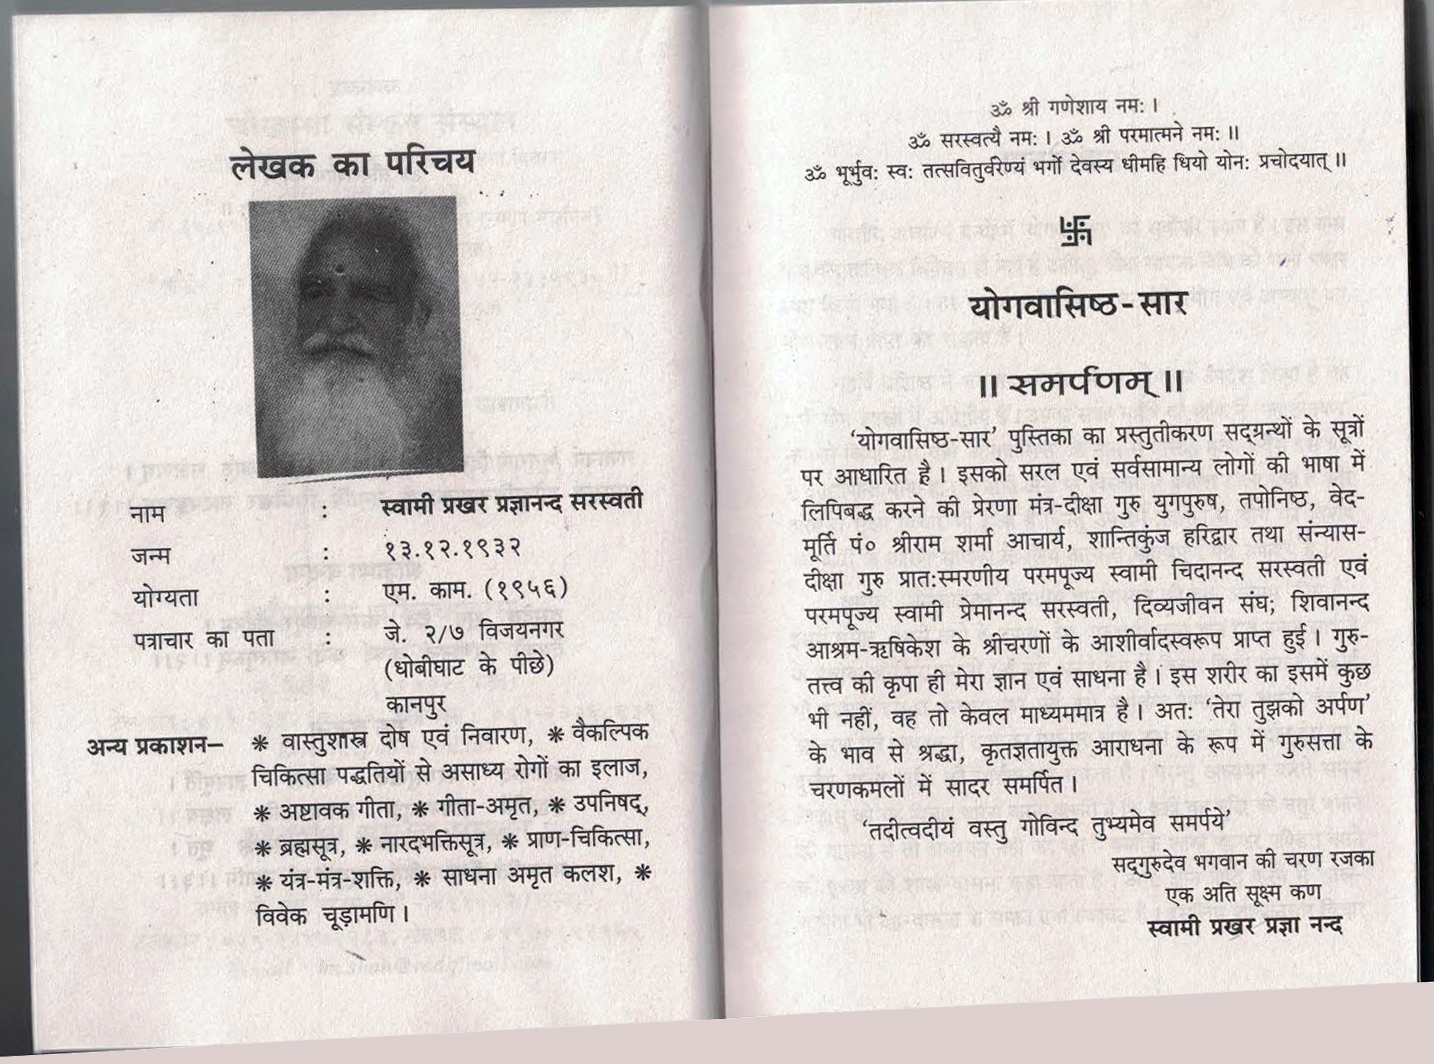 लेखक का परिचय
नाम : स्वामी प्रखर प्रज्ञानन्द सरस्वती
जन्म : १३.१२.१९३२
योग्यता : एम. काम. (१९५६)
पत्राचार का पता : जे. २/७ विजयनगर
(धोबीघाट के पीछे)
कानपुर
अन्य प्रकाशन– ❋ वास्तुशास्त्र दोष एवं निवारण, ❋ वैकल्पिक
चिकित्सा पद्धतियों से असाध्य रोगों का इलाज,
❋ अष्टावक गीता, ❋ गीता-अमृत, ❋ उपनिषद्,
❋ ब्रह्मसूत्र, ❋ नारदभक्तिसूत्र, ❋ प्राण-चिकित्सा,
❋ यंत्र-मंत्र-शक्ति, ❋ साधना अमृत कलश, ❋
विवेक चूड़ामणि।
ॐ श्री गणेशाय नमः।
ॐ सरस्वत्यै नमः। ॐ श्री परमात्मने नमः॥
ॐ भूर्भुवः स्वः तत्सवितुर्वरेण्यं भर्गो देवस्य धीमहि धियो योनः प्रचोदयात्॥
卐
योगवासिष्ठ-सार
॥ समर्पणम् ॥
‘योगवासिष्ठ-सार’ पुस्तिका का प्रस्तुतीकरण सद्ग्रन्थों के सूत्रों
पर आधारित है। इसको सरल एवं सर्वसामान्य लोगों की भाषा में
लिपिबद्ध करने की प्रेरणा मंत्र-दीक्षा गुरु युगपुरुष, तपोनिष्ठ, वेद-
मूर्ति पं० श्रीराम शर्मा आचार्य, शान्तिकुंज हरिद्वार तथा संन्यास-
दीक्षा गुरु प्रातःस्मरणीय परमपूज्य स्वामी चिदानन्द सरस्वती एवं
परमपूज्य स्वामी प्रेमानन्द सरस्वती, दिव्यजीवन संघ; शिवानन्द
आश्रम-ऋषिकेश के श्रीचरणों के आशीर्वादस्वरूप प्राप्त हुई। गुरु-
तत्त्व की कृपा ही मेरा ज्ञान एवं साधना है। इस शरीर का इसमें कुछ
भी नहीं, वह तो केवल माध्यममात्र है। अतः ‘तेरा तुझको अर्पण’
के भाव से श्रद्धा, कृतज्ञतायुक्त आराधना के रूप में गुरुसत्ता के
चरणकमलों में सादर समर्पित।
‘तदीत्वदीयं वस्तु गोविन्द तुभ्यमेव समर्पये’
सद्गुरुदेव भगवान की चरण रजका
एक अति सूक्ष्म कण
स्वामी प्रखर प्रज्ञा नन्द